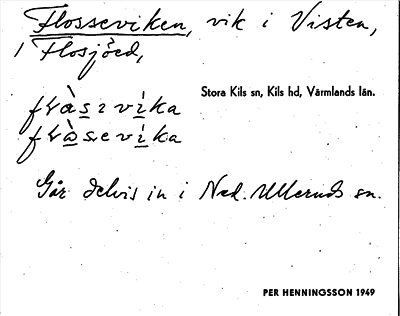 Flosseviken, vik i Visten,
/ Flosjöed,
Stora Kils sn, Kils hd, Värmlands län.
Går delvis in i Ned. Ulleruds sn.
PER HENNINGSSON 1949